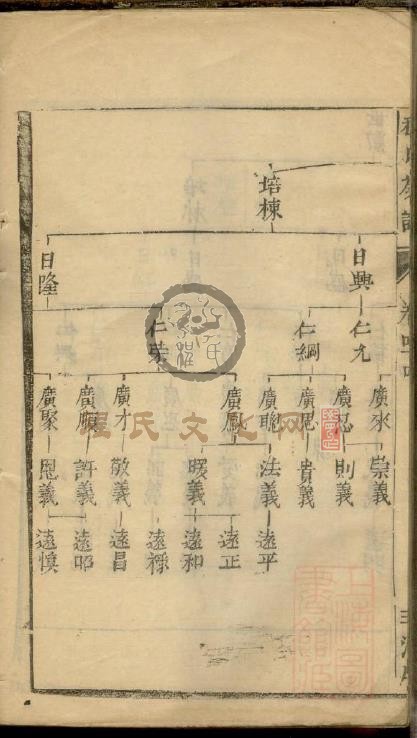 培棟
日興 日隆
仁九 仁綱 仁榮
廣來 廣忍 廣思 廣聰 廣鳳 廣才 廣順 廣聚
崇義 則義 貴義 法義 暖義 敬義 許義 恩義
遠平 遠正 遠和 遠祿 遠昌 遠昭 遠慎
程氏文化网
上海圖書館藏